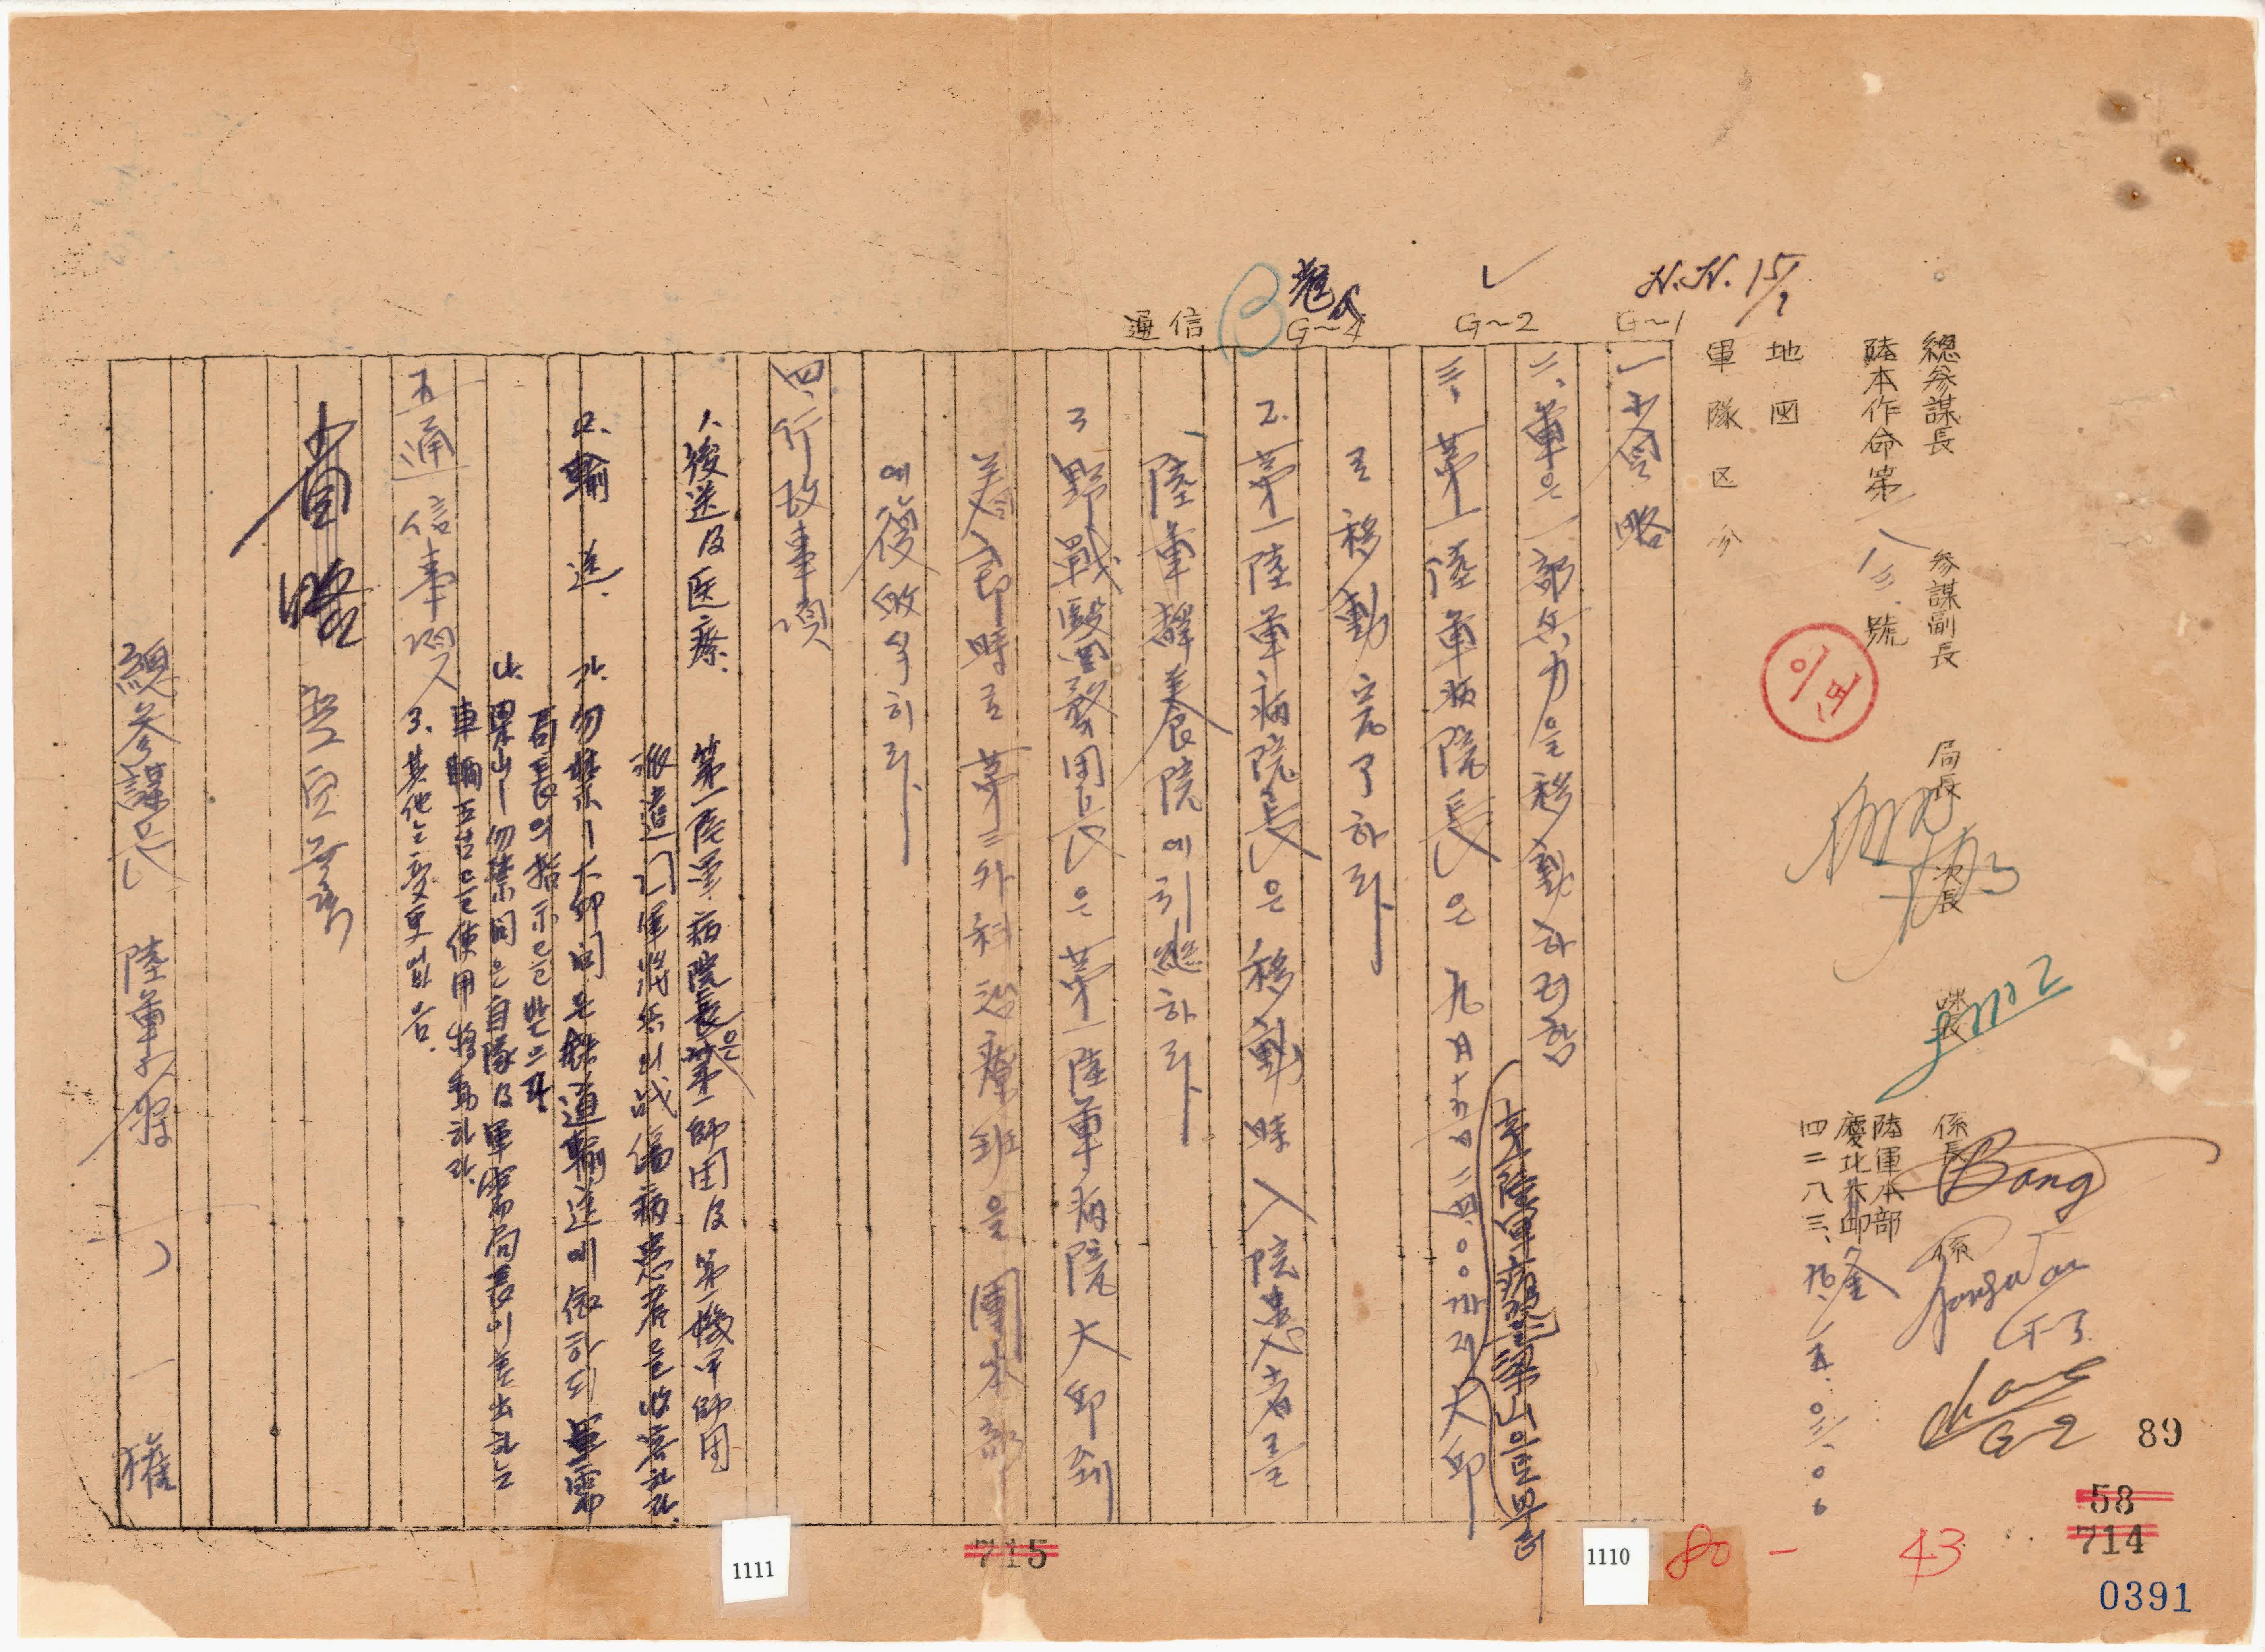 總參謀長 參謀副長 局長 次長 課長 係長 係
陸本作命第一八三號
地図
軍隊区分
陸軍本部
慶北大邱
四二八三、
Bang
G-3
G-2
H.H. 15/9
G~1
G~2
G~4
通信
一、全略
二、軍은 一部兵力을 移動하려함
三、第一陸軍病院長은 九月十五日二四.〇〇까지 大邱
로 移動完了하라
2. 第一陸軍病院長은 移動時 入院患者를
陸軍靜養院에 引継하라
3 野戰醫務団長은 第一陸軍病院 大邱到
着時로 第三外科治療班을 團本部
에 復敀식히라
四、行政事項
1、後送及医療. 第一陸軍病院長은 第一師団及第一機甲師団
派遣 軍將兵의 戰傷病患者를 收容하라.
2. 輸送. 가. 勿禁ー大邱間은 鉄道輸送에 依하되 軍需
局長의 指示를 받으라
나. 梁山ー勿禁間은 自隊及軍需局長이 差出하는
車輛五台를 使用移動하라.
3. 其他는 変更없음.
五 通信事項
省略
總參謀長 陸軍少將 丁 一 權
89
58
714
715
0391
1110
1111
80 - 43